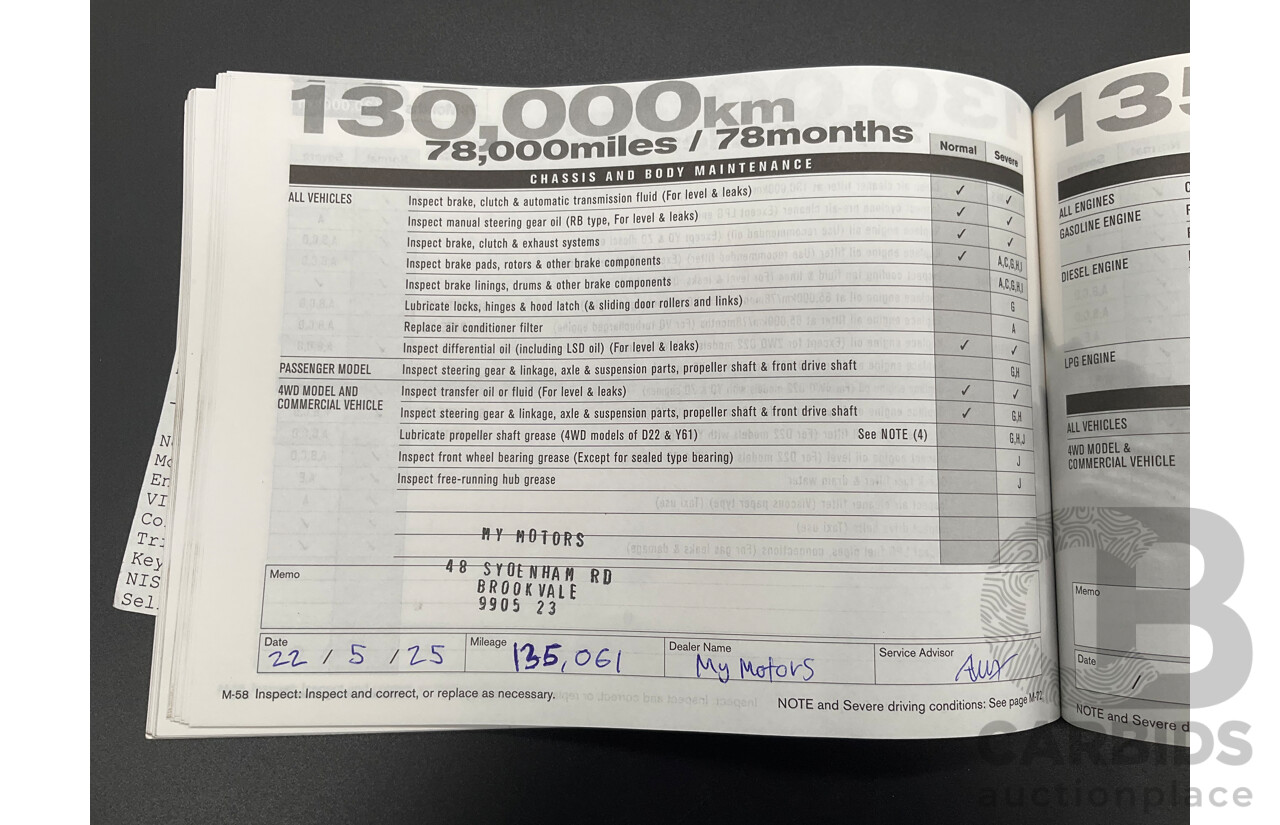 130,000km
78,000miles / 78months
Normal Severe
CHASSIS AND BODY MAINTENANCE
ALL VEHICLES Inspect brake, clutch & automatic transmission fluid (For level & leaks) ✓ ✓
Inspect manual steering gear oil (RB type, For level & leaks) ✓ ✓
Inspect brake, clutch & exhaust systems ✓ ✓
Inspect brake pads, rotors & other brake components ✓ A,C,G,H,I
Inspect brake linings, drums & other brake components A,C,G,H,I
Lubricate locks, hinges & hood latch (& sliding door rollers and links) G
Replace air conditioner filter A
Inspect differential oil (including LSD oil) (For level & leaks) ✓ ✓
PASSENGER MODEL Inspect steering gear & linkage, axle & suspension parts, propeller shaft & front drive shaft G,H
4WD MODEL AND Inspect transfer oil or fluid (For level & leaks) ✓ ✓
COMMERCIAL VEHICLE Inspect steering gear & linkage, axle & suspension parts, propeller shaft & front drive shaft ✓ G,H
Lubricate propeller shaft grease (4WD models of D22 & Y61) See NOTE (4) G,H,J
Inspect front wheel bearing grease (Except for sealed type bearing) J
Inspect free-running hub grease J
MY MOTORS
48 SYDENHAM RD
BROOKVALE
9905 23
Memo
Date 22 / 5 / 25 Mileage 135,061 Dealer Name My Motors Service Advisor
M-58 Inspect: Inspect and correct, or replace as necessary.
NOTE and Severe driving conditions: See page M-72
135
ALL ENGINES
GASOLINE ENGINE
DIESEL ENGINE
LPG ENGINE
ALL VEHICLES
4WD MODEL &
COMMERCIAL VEHICLE
Memo
Date /
NOTE and Severe d
VI
Co
Key
NIS
Sel
CARBIDS
auctionplace